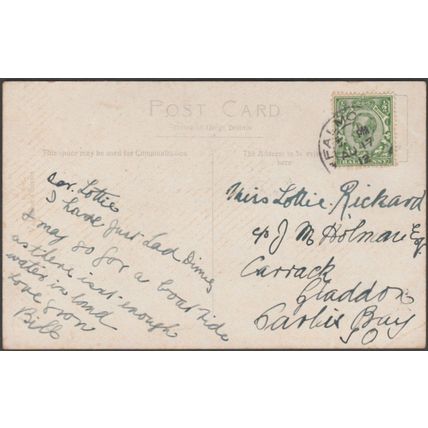 POST CARD
This space may be used for Communication
The Address to be written here
FALMO
AU 17
12
HALFPENNY
Dear Lottie
I have just had Dinner
& may go for a boat ride
as there isn't enough
water on land
Love from
Bill
Miss Lottie Rickard
c/o J M Holman Esq
Carrack
Gladdon
Carbis Bay